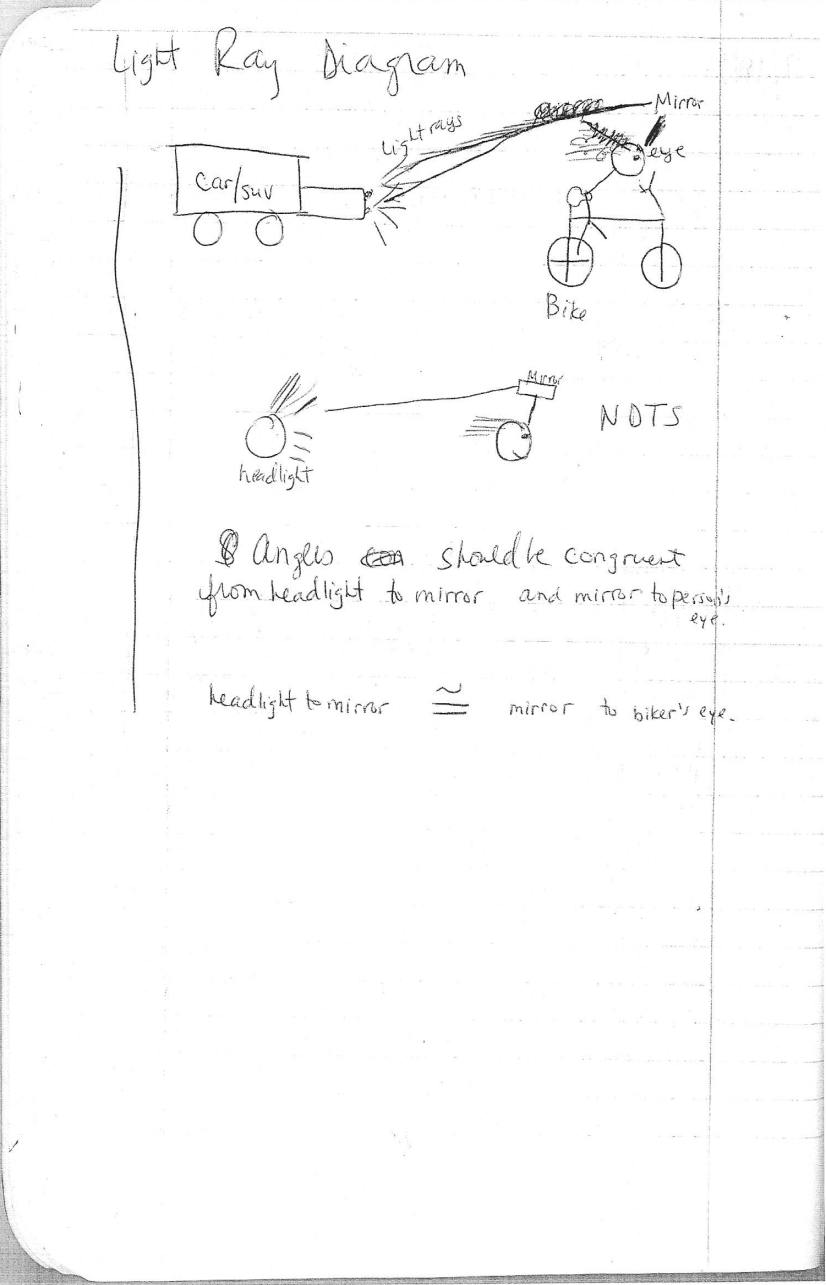 Light Ray Diagram
Light rays
Mirror
eye
Car/suv
Bike
Mirror
NDTS
headlight
Angles should be congruent
from headlight to mirror and mirror to person's
eye.
headlight to mirror ≅ mirror to biker's eye.